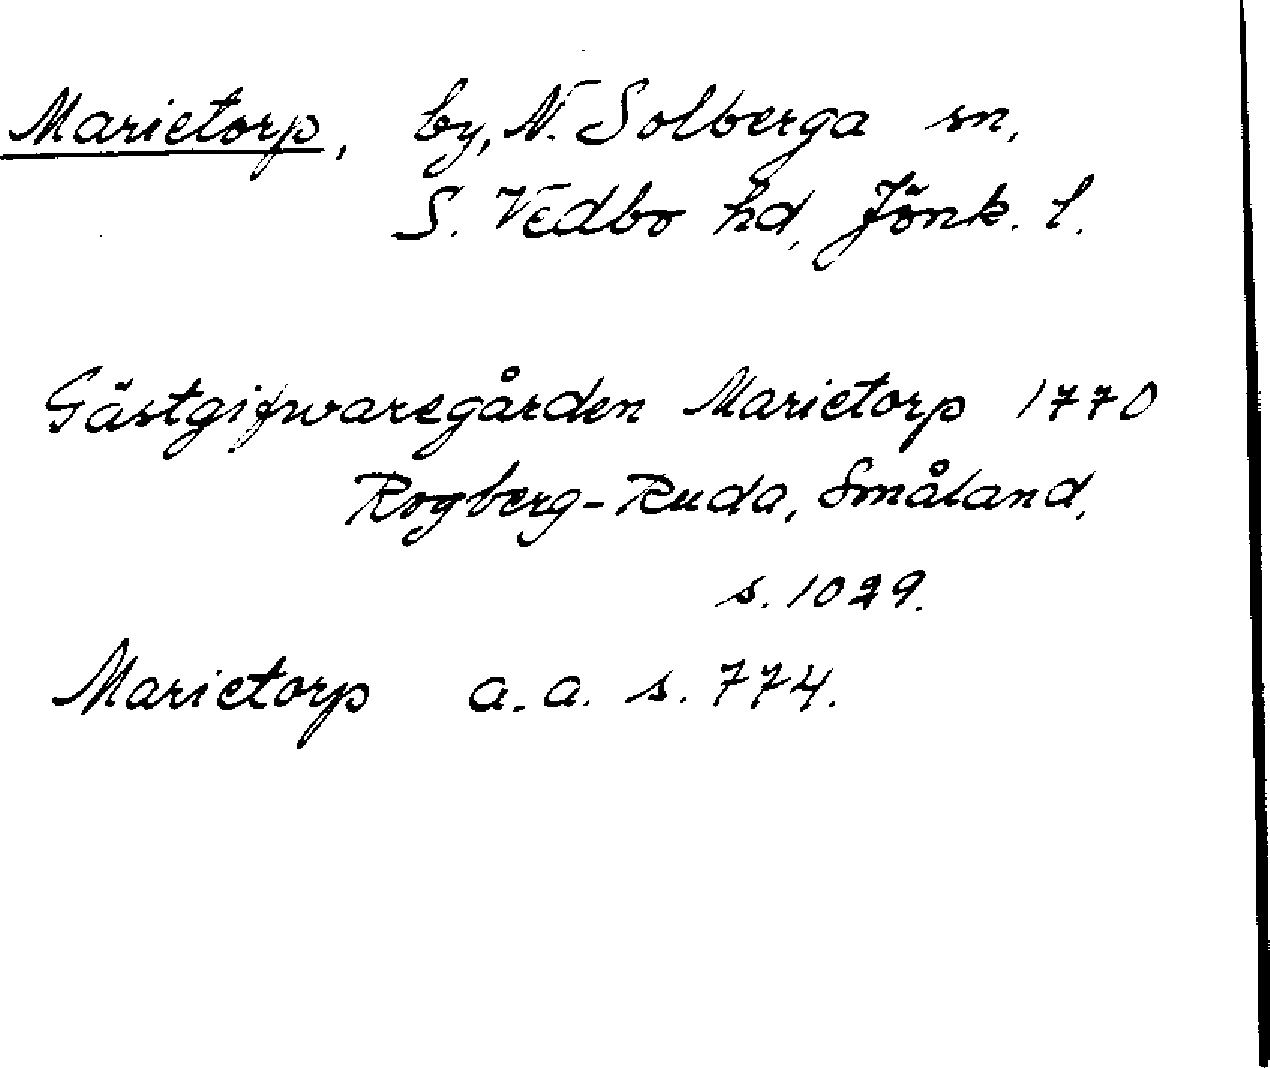 Marietorp, by, N. Solberga sn,
S. Vedbo hd, Jönk. l.
Gästgifwaregården Marietorp 1770
Rogberg-Ruda, Småland,
s. 1029.
Marietorp a. a. s. 774.